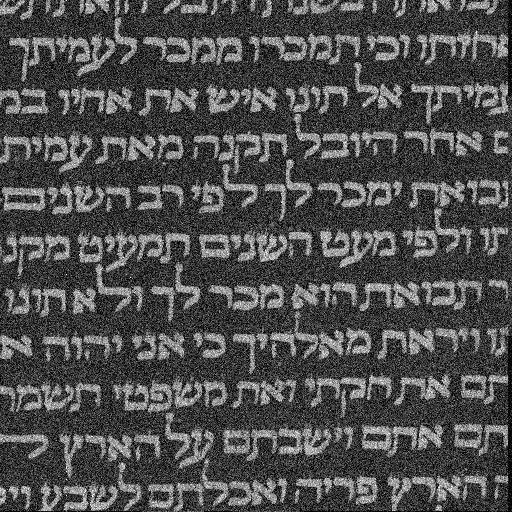 אחזתו וכי תמכרו ממכר לעמיתך
עמיתך אל תונו איש את אחיו במ
ם אחר היובל תקנה מאת עמית
תבואת ימכר לך לפי רב השנים
תו ולפי מעט השנים תמעיט מקנ
ר תבואת הוא מכר לך ולא תונו
תו ויראת מאלהיך כי אני יהוה א
תם את חקתי ואת משפטי תשמר
תם אתם וישבתם על הארץ ל
ה הארץ פריה ואכלתם לשבע ויש